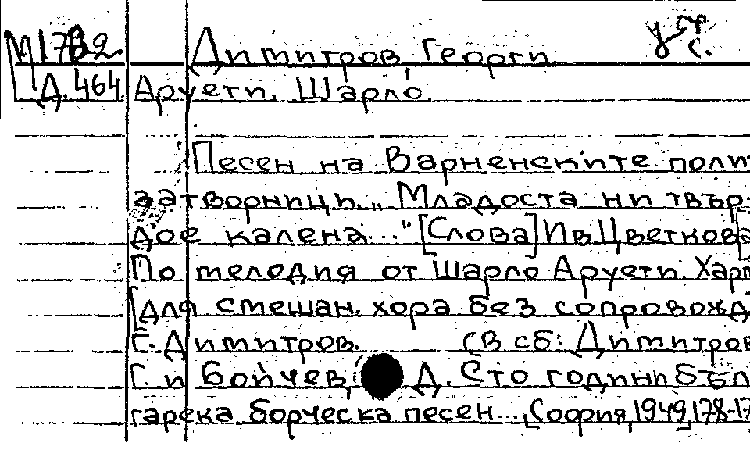 М1782 Димитров, Георги
Д.464 Аруети, Шарло.
Песен на Варненските поли
затворници „Младоста ни твър-
дое калена..." [Слова] Ив.Цветкова
По мелодия от Шарло Аруети. Харм
[для смешан. хора без сопровожд
Г. Димитров. (В сб: Димитров
Г. и Бойчев, Д. Сто години бъл
гарска борческа песен..., София, 1949, 178-17